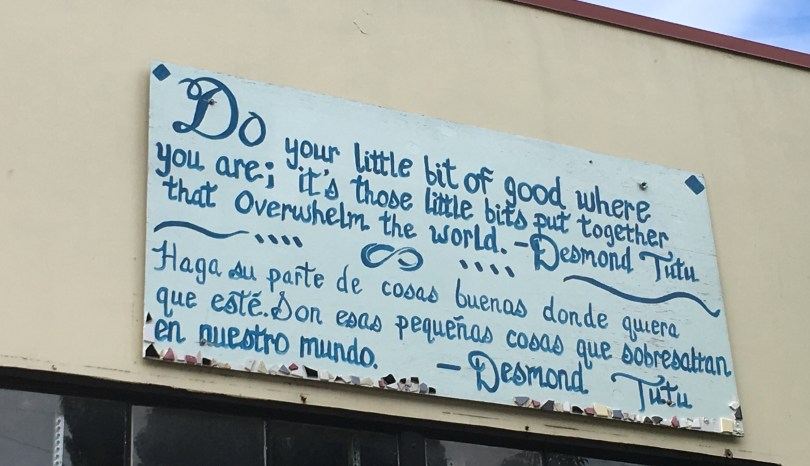 Do your little bit of good where
you are; it's those little bits put together
that overwhelm the world. - Desmond Tutu
Haga su parte de cosas buenas donde quiera
que esté. Son esas pequeñas cosas que sobresaltan
en nuestro mundo. - Desmond Tutu